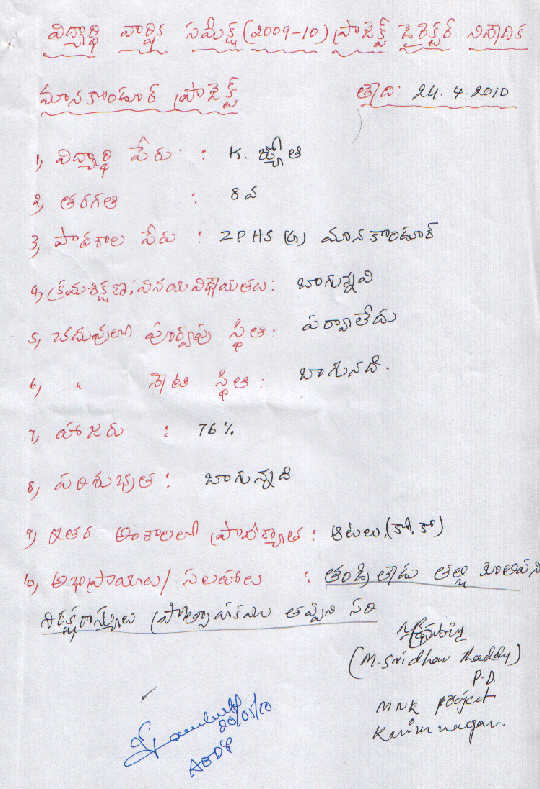 విద్యార్థి వార్షిక సమీక్ష (2009-10) ప్రాజెక్ట్ డైరెక్టర్ నివేదిక
మానకొండూర్ ప్రాజెక్ట్ తేది: 24.4.2010
1, విద్యార్థి పేరు : K. జ్యోతి
2, తరగతి : 8వ
3, పాఠశాల పేరు : ZPHS (బా) మానకొండూర్
4, క్రమశిక్షణ, వినయవిధేయతలు: బాగున్నవి
5, చదువులో పూర్వపు స్థితి: పర్వాలేదు
6, " నేటి స్థితి: బాగున్నది.
7, హాజరు : 76%
8, పరిశుభ్రత : బాగున్నది
9, ఇతర అంశాలలో ప్రావీణ్యత : ఆటలు (ఖో.ఖో)
10, అభిప్రాయాలు/సలహాలు : తండ్రి లేడు తల్లి
ప్రోత్సాహకము తప్పని సరి
(M. Sridhar Reddy)
P.D
MNK Project
Karimnagar.
20/05/10